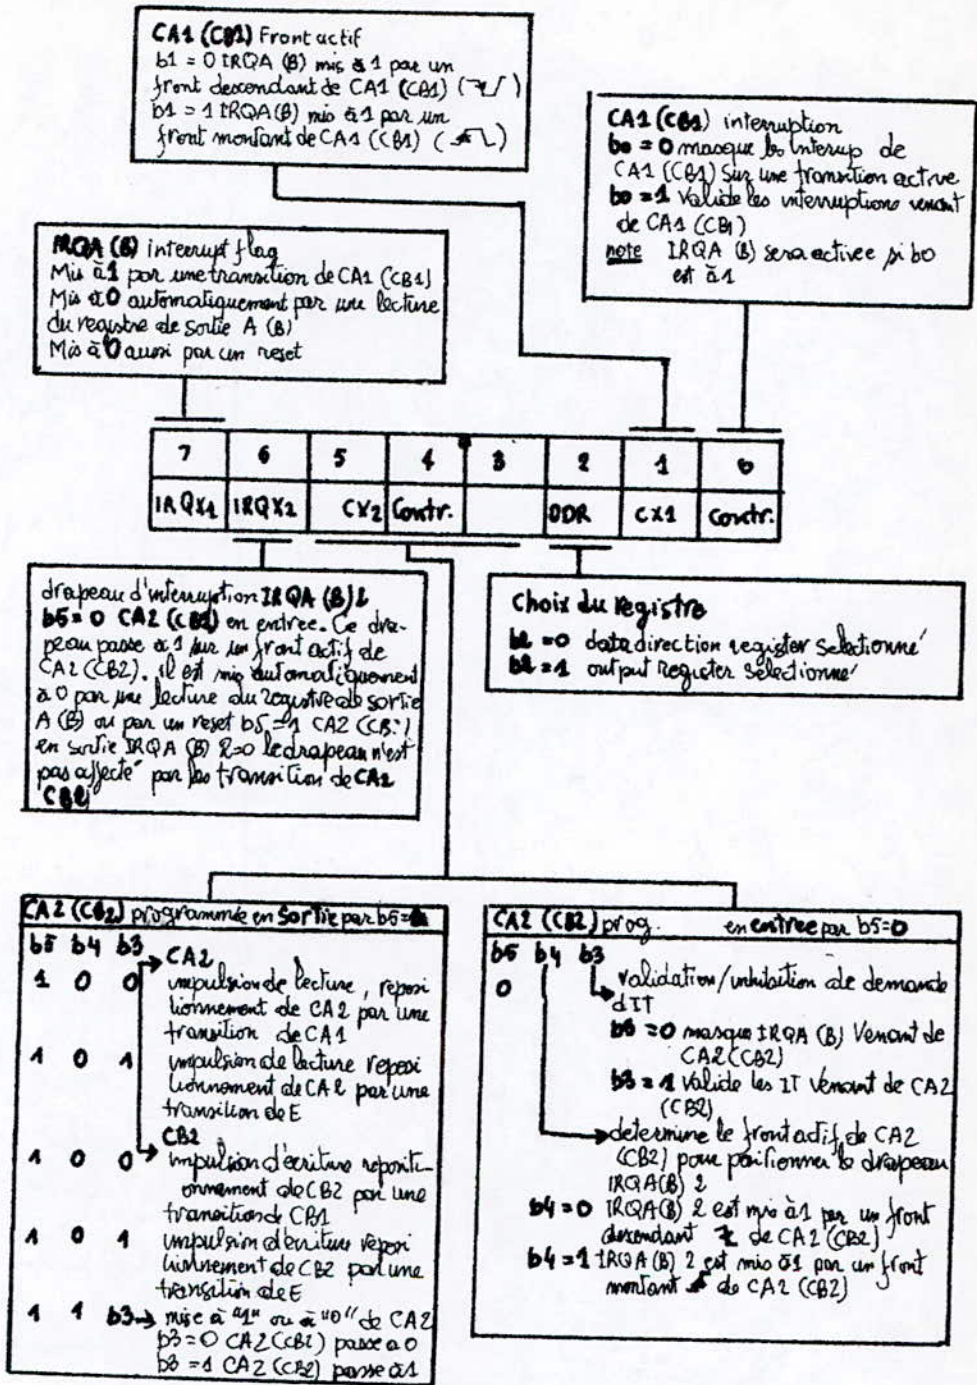 CA1 (CB1) Front actif
b1 = 0 IRQA (B) mis à 1 par un
front descendant de CA1 (CB1)
b1 = 1 IRQA (B) mis à 1 par un
front montant de CA1 (CB1)
CA1 (CB1) interruption
b0 = 0 masque les interup de
CA1 (CB1) Sur une transition active
b0 = 1 valide les interruptions venant
de CA1 (CB1)
note IRQA (B) sera activee si b0
est à 1
IRQA (B) interrupt flag
Mis à 1 par une transition de CA1 (CB1)
Mis à 0 automatiquement par une lecture
du registre de sortie A (B)
Mis à 0 aussi par un reset
7 6 5 4 3 2 1 0
IRQX1 IRQX2 CX2 Contr. DDR CX1 Contr.
drapeau d'interruption IRQA (B) 2
b5 = 0 CA2 (CB2) en entree. Ce dra-
peau passe à 1 sur un front actif de
CA2 (CB2). il est mis automatiquement
à 0 par une lecture du registre de sortie
A (B) ou par un reset b5 = 1 CA2 (CB2)
en sortie IRQA (B) 2=0 le drapeau n'est
pas affecté par les transition de CA2
CB2
Choix du registre
b2 = 0 data direction register selectionné
b2 = 1 output register sélectionné
CA2 (CB2) programmée en sortie par b5=1
b5 b4 b3
CA2
1 0 0 impulsion de lecture, reposi
tionnement de CA2 par une
transition de CA1
1 0 1 impulsion de lecture reposi
tionnement de CA2 par une
transition de E
CB2
1 0 0 impulsion d'écriture repositi-
onnement de CB2 par une
transition de CB1
1 0 1 impulsion d'écriture reposi
tionnement de CB2 par une
transition de E
1 1 b3 → mise à "1" ou à "0" de CA2
b3 = 0 CA2 (CB2) passe a 0
b3 = 1 CA2 (CB2) passe à 1
CA2 (CB2) prog. en entree par b5=0
b5 b4 b3
0 validation/inhibition de demande
d IT
b3 = 0 masque IRQA (B) Venant de
CA2 (CB2)
b3 = 1 valide les IT venant de CA2
(CB2)
determine le front actif de CA2
(CB2) pour positionner le drapeau
IRQA(B) 2
b4 = 0 IRQA(B) 2 est mis à 1 par un front
descendant de CA2 (CB2)
b4 = 1 IRQA(B) 2 est mis à 1 par un front
montant de CA2 (CB2)